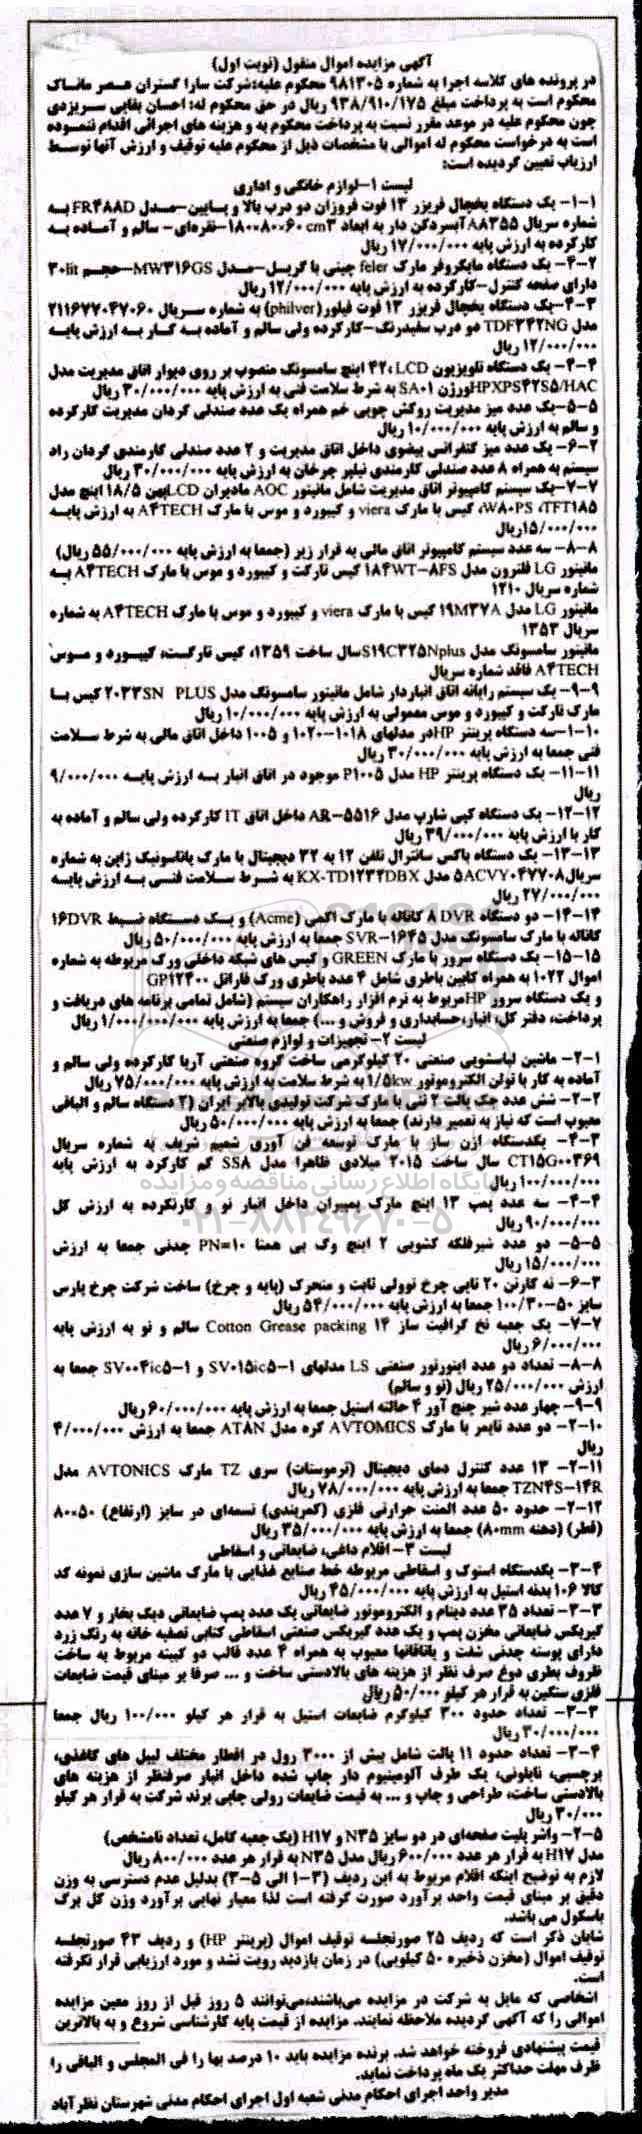 آگهی مزایده اموال منقول (نوبت اول)
در پرونده های کلاسه اجرا به شماره ۹۸۱۳۰۵ محکوم علیه:شرکت سارا گستران عصر ماناک
محکوم است به پرداخت مبلغ ۹۳۸/۹۱۰/۱۷۵ ریال در حق محکوم له: احسان بقایی سریزدی
چون محکوم علیه در موعد مقرر نسبت به پرداخت محکوم به و هزینه های اجرائی اقدام ننموده
است به درخواست محکوم له اموالی با مشخصات ذیل از محکوم علیه توقیف و ارزش آنها توسط
ارزیاب تعیین گردیده است:
لیست ۱-لوازم خانگی و اداری
۱-۱- یک دستگاه یخچال فریزر ۱۳ فوت فروزان دو درب بالا و پایین-مدل FR۴۸۸D به
شماره سریال A۸۳۵۵آبسردکن دار به ابعاد ۱۸۰×۸۰×۶۰ cm۳-نقره‌ای- سالم و آماده به
کارکرده به ارزش پایه ۱۷/۰۰۰/۰۰۰ ریال
۲-۴- یک دستگاه مایکروفر مارک feler چینی با گریل-مدل MW۳۱۶GS-حجم ۳۰lit
دارای صفحه کنترل-کارکرده به ارزش پایه ۱۲/۰۰۰/۰۰۰ ریال
۳-۴-یک دستگاه یخچال فریزر ۱۳ فوت فیلور(philver) به شماره سریال ۲۱۱۶۷۷۰۴۷۰۶۰
مدل TDF۳۴۲NG دو درب سفیدرنگ-کارکرده ولی سالم و آماده به کار به ارزش پایه
۱۲/۰۰۰/۰۰۰ ریال
۴-۴- یک دستگاه تلویزیون LCD، ۴۲ اینچ سامسونگ منصوب بر روی دیوار اتاق مدیریت مدل
HPXPS۴۲S۵/HACورژن SA۰۱ به شرط سلامت فنی به ارزش پایه ۳۰/۰۰۰/۰۰۰ ریال
۵-۵-یک عدد میز مدیریت روکش چوبی خم همراه یک عدد صندلی گردان مدیریت کارکرده
و سالم به ارزش پایه ۱۰/۰۰۰/۰۰۰ ریال
۲-۶- یک عدد میز کنفرانس بیضوی داخل اتاق مدیریت و ۲ عدد صندلی کارمندی گردان راد
سیستم به همراه ۸ عدد صندلی کارمندی نیلپر چرخان به ارزش پایه ۳۰/۰۰۰/۰۰۰ ریال
۷-۷-یک سیستم کامپیوتر اتاق مدیریت شامل مانیتور AOC مادیران LCDپهن ۱۸/۵ اینچ مدل
W۸۰PS ،TFT۱۸۵، کیس با مارک viera و کیبورد و موس با مارک A۴TECH به ارزش پایه
۱۵/۰۰۰/۰۰۰ریال
۸-۸- سه عدد سیستم کامپیوتر اتاق مالی به قرار زیر (جمعا به ارزش پایه ۵۵/۰۰۰/۰۰۰ ریال)
مانیتور LG فلترون مدل ۱۸۴WT-۸FS کیس تارکت و کیبورد و موس با مارک A۴TECH به
شماره سریال ۱۲۱۰
مانیتور LG مدل ۱۹M۳۷A کیس با مارک viera و کیبورد و موس با مارک A۴TECH به شماره
سریال ۱۳۵۳
مانیتور سامسونگ مدل S۱۹C۳۲۵Nplusسال ساخت ۱۳۵۹، کیس تارکت، کیبورد و موس
A۴TECH فاقد شماره سریال
۹-۹- یک سیستم رایانه اتاق انباردار شامل مانیتور سامسونگ مدل ۲۰۳۳SN PLUS کیس با
مارک تارکت و کیبورد و موس معمولی به ارزش پایه ۱۰/۰۰۰/۰۰۰ ریال
۱-۱۰-سه دستگاه پرینتر HPدر مدلهای ۱۰۱۸-۱۰۲۰ و ۱۰۰۵ داخل اتاق مالی به شرط سلامت
فنی جمعا به ارزش پایه ۳۰/۰۰۰/۰۰۰ ریال
۱۱-۱۱- یک دستگاه پرینتر HP مدل P۱۰۰۵ موجود در اتاق انبار به ارزش پایه ۹/۰۰۰/۰۰۰
ریال
۱۲-۱۲- یک دستگاه کپی شارپ مدل AR-۵۵۱۶ داخل اتاق IT کارکرده ولی سالم و آماده به
کار با ارزش پایه ۳۹/۰۰۰/۰۰۰ ریال
۱۳-۱۳- یک دستگاه باکس سانترال تلفن ۱۲ به ۳۲ دیجیتال با مارک پاناسونیک ژاپن به شماره
سریال۵ACVY۰۴۷۷۰۸ مدل KX-TD۱۲۳۲DBX به شرط سلامت فنی به ارزش پایه
۲۷/۰۰۰/۰۰۰ ریال
۱۴-۱۴- دو دستگاه DVR ۸ کاناله با مارک اکمی (Acme) و یک دستگاه ضبط ۱۶DVR
کاناله با مارک سامسونگ مدل SVR-۱۶۴۵ جمعا به ارزش پایه ۵۰/۰۰۰/۰۰۰ ریال
۱۵-۱۵- یک دستگاه سرور با مارک GREEN و کیس های شبکه داخلی ورک مربوطه به شماره
اموال ۱۰۲۲ به همراه کابین باطری شامل ۴ عدد باطری ورک فاراتل GP۱۲۴۰۰
و یک دستگاه سرور HPمربوط به نرم افزار راهکاران سیستم (شامل تمامی برنامه های دریافت و
پرداخت، دفتر کل، انبار،حسابداری و فروش و ...) جمعا به ارزش پایه ۱/۰۰۰/۰۰۰/۰۰۰ ریال
لیست ۲- تجهیزات و لوازم صنعتی
۲-۱- ماشین لباسشویی صنعتی ۲۰ کیلوگرمی ساخت گروه صنعتی آریا کارکرده ولی سالم و
آماده به کار با توان الکتروموتور ۱/۵kw به شرط سلامت به ارزش پایه ۷۵/۰۰۰/۰۰۰ ریال
۲-۲- شش عدد جک پالت ۲ تنی با مارک شرکت تولیدی بالابر ایران (۲ دستگاه سالم و الباقی
معیوب است که نیاز به تعمیر دارند) جمعا به ارزش پایه ۵۰/۰۰۰/۰۰۰ ریال
۳-۴- یکدستگاه ازن ساز با مارک توسعه فن آوری شمیم شریف به شماره سریال
CT۱۵G۰۰۳۶۹ سال ساخت ۲۰۱۵ میلادی ظاهرا مدل SSA کم کارکرد به ارزش پایه
۱۰۰/۰۰۰/۰۰۰ ریال
پایگاه اطلاع رسانی مناقصه و مزایده
۴-۴- سه عدد پمپ ۱۳ اینچ مارک پمپیران داخل انبار نو و کارنکرده به ارزش کل
۹۰/۰۰۰/۰۰۰ ریال
۰۲۱-۸۸۳۴۹۶۷۰-۵
۵-۵- دو عدد شیرفلکه کشویی ۲ اینچ وگ بی همتا PN=۱۰ چدنی جمعا به ارزش
۱۵/۰۰۰/۰۰۰ ریال
۳-۶- نه کارتن ۲۰ تایی چرخ توولی ثابت و متحرک (پایه و چرخ) ساخت شرکت چرخ پارس
سایز ۵۰-۱۰۰/۳۰ جمعا به ارزش پایه ۵۴/۰۰۰/۰۰۰ ریال
۷-۷- یک جعبه نخ گرافیت ساز ۱۴ Cotton Grease packing سالم و نو به ارزش پایه
۶/۰۰۰/۰۰۰ ریال
۸-۸- تعداد دو عدد اینورتور صنعتی LS مدلهای SV۰۱۵ic۵-۱ و SV۰۰۴ic۵-۱ جمعا به
ارزش ۲۵/۰۰۰/۰۰۰ ریال (نو و سالم)
۹-۹- چهار عدد شیر چنج آور ۴ حالته استیل جمعا به ارزش پایه ۶۰/۰۰۰/۰۰۰ ریال
۲-۱۰- دو عدد تایمر با مارک AVTOMICS کره مدل ATAN جمعا به ارزش ۴/۰۰۰/۰۰۰
ریال
۲-۱۱- ۱۳ عدد کنترل دمای دیجیتال (ترموستات) سری TZ مارک AVTONICS مدل
TZN۴S-۱۴R جمعا به ارزش پایه ۷۸/۰۰۰/۰۰۰ ریال
۲-۱۲- حدود ۵۰ عدد المنت حرارتی فلزی (کمربندی) تسمه‌ای در سایز (ارتفاع) ۵۰×۸۰
(قطر) (دهنه ۸۰mm) جمعا به ارزش پایه ۳۵/۰۰۰/۰۰۰ ریال
لیست ۳- اقلام داغی، ضایعاتی و اسقاطی
۳-۴- یکدستگاه استوک و اسقاطی مربوطه خط صنایع غذایی با مارک ماشین سازی نمونه کد
کالا ۱۰۶ بدنه استیل به ارزش پایه ۴۵/۰۰۰/۰۰۰ ریال
۳-۳- تعداد ۳۵ عدد دینام و الکتروموتور ضایعاتی یک عدد پمپ ضایعاتی دیگ بخار و ۷ عدد
گیربکس ضایعاتی مخزن پمپ و یک عدد گیربکس صنعتی اسقاطی کتابی تصفیه خانه به رنگ زرد
دارای پوسته چدنی شفت و یاتاقانها معیوب به همراه ۴ عدد قالب دو کبیته مربوط به ساخت
ظروف بطری دوغ صرف نظر از هزینه های بالادستی ساخت و ... صرفا بر مبنای قیمت ضایعات
فلزی سنگین به قرار هر کیلو ۵۰/۰۰۰ ریال
۳-۳- تعداد حدود ۳۰۰ کیلوگرم ضایعات استیل به قرار هر کیلو ۱۰۰/۰۰۰ ریال جمعا
۳۰/۰۰۰/۰۰۰ ریال
۳-۴- تعداد حدود ۱۱ پالت شامل بیش از ۳۰۰۰ رول در اقطار مختلف لیبل های کاغذی،
برچسبی، نایلونی، یک طرف آلومینیوم دار چاپ شده داخل انبار صرفنظر از هزینه های
بالادستی ساخت، طراحی و چاپ و ... به قیمت ضایعات رولی چاپی برند شرکت به قرار هر کیلو
۳۰/۰۰۰ ریال
۲-۵- واشر پلیت صفحه‌ای در دو سایز N۳۵ و H۱۷ (یک جعبه کامل، تعداد نامشخص)
مدل H۱۷ به قرار هر عدد ۶۰۰/۰۰۰ ریال مدل N۳۵ به قرار هر عدد ۸۰۰/۰۰۰ ریال
لازم به توضیح اینکه اقلام مربوط به این ردیف (۳-۱ الی ۵-۳) بدلیل عدم دسترسی به وزن
دقیق بر مبنای قیمت واحد برآورد صورت گرفته است لذا معیار نهایی برآورد وزن کل برگ
باسکول می باشد.
شایان ذکر است که ردیف ۲۵ صورتجلسه توقیف اموال (پرینتر HP) و ردیف ۴۳ صورتجلسه
توقیف اموال (مخزن ذخیره ۵۰ کیلویی) در زمان بازدید رویت نشد و مورد ارزیابی قرار نگرفته
است.
اشخاصی که مایل به شرکت در مزایده می‌باشند،می‌توانند ۵ روز قبل از روز معین مزایده
اموالی را که آگهی گردیده ملاحظه نمایند. مزایده از قیمت پایه کارشناسی شروع و به بالاترین
قیمت پیشنهادی فروخته خواهد شد. برنده مزایده باید ۱۰ درصد بها را فی المجلس و الباقی را
ظرف مهلت حداکثر یک ماه پرداخت نماید.
مدیر واحد اجرای احکام مدنی شعبه اول اجرای احکام مدنی شهرستان نظرآباد